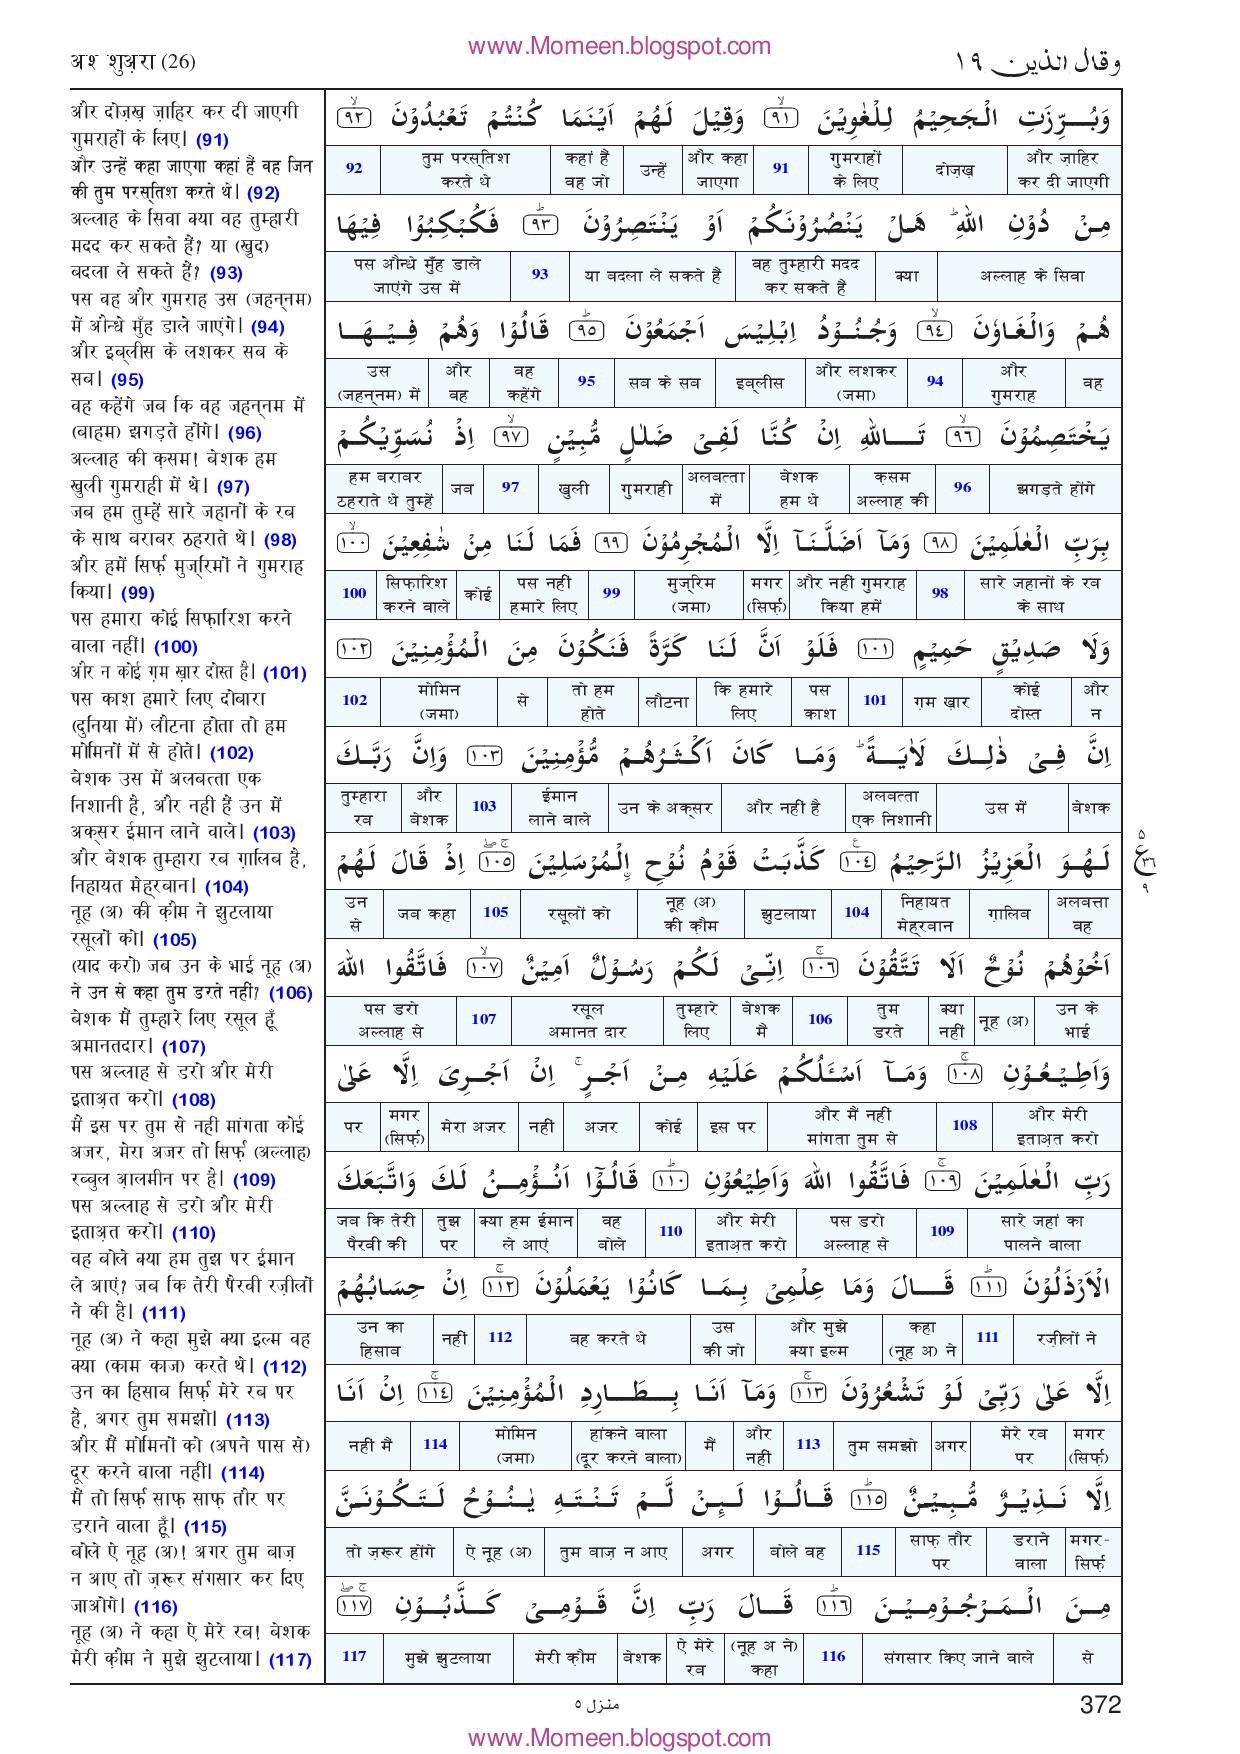 www.Momeen.blogspot.com
अश शुअ़रा (26)
وقال الذين ١٩
और दोज़ख़ ज़ाहिर कर दी जाएगी
गुमराहों के लिए। (91)
और उन्हें कहा जाएगा कहां हैं वह जिन
की तुम परस्तिश करते थे। (92)
अल्लाह के सिवा क्या वह तुम्हारी
मदद कर सकते हैं? या (खुद)
बदला ले सकते हैं? (93)
पस वह और गुमराह उस (जहन्नम)
में औन्धे मुँह डाले जाएंगे। (94)
और इब्लीस के लशकर सब के
सब। (95)
वह कहेंगे जब कि वह जहन्नम में
(बाहम) झगड़ते होंगे। (96)
अल्लाह की क़सम! बेशक हम
खुली गुमराही में थे। (97)
जब हम तुम्हें सारे जहानों के रब
के साथ बराबर ठहराते थे। (98)
और हमें सिर्फ़ मुज्रिमों ने गुमराह
किया। (99)
पस हमारा कोई सिफ़ारिश करने
वाला नहीं। (100)
और न कोई ग़म ख़ार दोस्त है। (101)
पस काश हमारे लिए दोबारा
(दुनिया में) लौटना होता तो हम
मोमिनों में से होते। (102)
बेशक उस में अलबत्ता एक
निशानी है, और नहीं हैं उन में
अक्सर ईमान लाने वाले। (103)
और बेशक तुम्हारा रब ग़ालिब है,
निहायत मेह्रबान। (104)
नूह (अ) की क़ौम ने झुटलाया
रसूलों को। (105)
(याद करो) जब उन के भाई नूह (अ)
ने उन से कहा तुम डरते नहीं? (106)
बेशक मैं तुम्हारे लिए रसूल हूँ
अमानतदार। (107)
पस अल्लाह से डरो और मेरी
इताअ़त करो। (108)
मैं इस पर तुम से नहीं मांगता कोई
अजर, मेरा अजर तो सिर्फ़ (अल्लाह)
रब्बुल आ़लमीन पर है। (109)
पस अल्लाह से डरो और मेरी
इताअ़त करो। (110)
वह बोले क्या हम तुझ पर ईमान
ले आएं? जब कि तेरी पैरवी रज़ीलों
ने की है। (111)
नूह (अ) ने कहा मुझे क्या इल्म वह
क्या (काम काज) करते थे। (112)
उन का हिसाब सिर्फ़ मेरे रब पर
है, अगर तुम समझो। (113)
और मैं मोमिनों को (अपने पास से)
दूर करने वाला नहीं। (114)
मैं तो सिर्फ़ साफ़ साफ़ तौर पर
डराने वाला हूँ। (115)
बोले ऐ नूह (अ)! अगर तुम बाज़
न आए तो ज़रूर संगसार कर दिए
जाओगे। (116)
नूह (अ) ने कहा ऐ मेरे रब! बेशक
मेरी क़ौम ने मुझे झुटलाया। (117)
وَبُرِّزَتِ الْجَحِيْمُ لِلْغٰوِيْنَ ۙ٩١ وَقِيْلَ لَهُمْ اَيْنَمَا كُنْتُمْ تَعْبُدُوْنَ ۙ٩٢
और ज़ाहिर कर दी जाएगी दोज़ख़ गुमराहों के लिए 91 और कहा जाएगा उन्हें कहां हैं वह जो तुम परस्तिश करते थे 92
مِنْ دُوْنِ اللّٰهِ ؕ هَلْ يَنْصُرُوْنَكُمْ اَوْ يَنْتَصِرُوْنَ ؕ٩٣ فَكُبْكِبُوْا فِيْهَا
अल्लाह के सिवा क्या वह तुम्हारी मदद कर सकते हैं या बदला ले सकते हैं 93 पस औन्धे मुँह डाले जाएंगे उस में
هُمْ وَالْغَاوٗنَ ۙ٩٤ وَجُنُوْدُ اِبْلِيْسَ اَجْمَعُوْنَ ؕ٩٥ قَالُوْا وَهُمْ فِيْهَا
वह और गुमराह 94 और लशकर (जमा) इब्लीस सब के सब 95 वह कहेंगे और वह उस (जहन्नम) में
يَخْتَصِمُوْنَ ۙ٩٦ تَاللّٰهِ اِنْ كُنَّا لَفِيْ ضَلٰلٍ مُّبِيْنٍ ۙ٩٧ اِذْ نُسَوِّيْكُمْ
झगड़ते होंगे 96 क़सम अल्लाह की बेशक हम थे अलबत्ता में गुमराही खुली 97 जब हम बराबर ठहराते थे तुम्हें
بِرَبِّ الْعٰلَمِيْنَ ٩٨ وَمَآ اَضَلَّنَآ اِلَّا الْمُجْرِمُوْنَ ٩٩ فَمَا لَنَا مِنْ شٰفِعِيْنَ ۙ١٠٠
सारे जहानों के रब के साथ 98 और नहीं गुमराह किया हमें मगर (सिर्फ़) मुज्रिम (जमा) 99 पस नहीं हमारे लिए कोई सिफ़ारिश करने वाले 100
وَلَا صَدِيْقٍ حَمِيْمٍ ١٠١ فَلَوْ اَنَّ لَنَا كَرَّةً فَنَكُوْنَ مِنَ الْمُؤْمِنِيْنَ ١٠٢
और न कोई दोस्त ग़म ख़ार 101 पस काश कि हमारे लिए लौटना तो हम होते से मोमिन (जमा) 102
اِنَّ فِيْ ذٰلِكَ لَاٰيَةً ؕ وَمَا كَانَ اَكْثَرُهُمْ مُّؤْمِنِيْنَ ١٠٣ وَاِنَّ رَبَّكَ
बेशक उस में अलबत्ता एक निशानी और नहीं है उन के अक्सर ईमान लाने वाले 103 और बेशक तुम्हारा रब
لَهُوَ الْعَزِيْزُ الرَّحِيْمُ ١٠٤ كَذَّبَتْ قَوْمُ نُوْحِ ِۨالْمُرْسَلِيْنَ ١٠٥ اِذْ قَالَ لَهُمْ
٥ ع ٣٦ ٩
अलबत्ता वह ग़ालिब निहायत मेह्रबान 104 झुटलाया नूह (अ) की क़ौम रसूलों को 105 जब कहा उन से
اَخُوْهُمْ نُوْحٌ اَلَا تَتَّقُوْنَ ۚ١٠٦ اِنِّيْ لَكُمْ رَسُوْلٌ اَمِيْنٌ ۙ١٠٧ فَاتَّقُوا اللّٰهَ
उन के भाई नूह (अ) क्या नहीं तुम डरते 106 बेशक मैं तुम्हारे लिए रसूल अमानत दार 107 पस डरो अल्लाह से
وَاَطِيْعُوْنِ ۚ١٠٨ وَمَآ اَسْـَٔلُكُمْ عَلَيْهِ مِنْ اَجْرٍ ۚ اِنْ اَجْرِيَ اِلَّا عَلٰى
और मेरी इताअ़त करो 108 और मैं नहीं मांगता तुम से इस पर कोई अजर नहीं मेरा अजर मगर (सिर्फ़) पर
رَبِّ الْعٰلَمِيْنَ ۚ١٠٩ فَاتَّقُوا اللّٰهَ وَاَطِيْعُوْنِ ؕ١١٠ قَالُوْٓا اَنُؤْمِنُ لَكَ وَاتَّبَعَكَ
सारे जहां का पालने वाला 109 पस डरो अल्लाह से और मेरी इताअ़त करो 110 वह बोले क्या हम ईमान ले आएं तुझ पर जब कि तेरी पैरवी की
الْاَرْذَلُوْنَ ؕ١١١ قَالَ وَمَا عِلْمِيْ بِمَا كَانُوْا يَعْمَلُوْنَ ۚ١١٢ اِنْ حِسَابُهُمْ
रज़ीलों ने 111 कहा (नूह अ) ने और मुझे क्या इल्म उस की जो वह करते थे 112 नहीं उन का हिसाब
اِلَّا عَلٰى رَبِّيْ لَوْ تَشْعُرُوْنَ ۚ١١٣ وَمَآ اَنَا بِطَارِدِ الْمُؤْمِنِيْنَ ۚ١١٤ اِنْ اَنَا
मगर (सिर्फ़) मेरे रब पर अगर तुम समझो 113 और नहीं मैं हांकने वाला (दूर करने वाला) मोमिन (जमा) 114 नहीं मैं
اِلَّا نَذِيْرٌ مُّبِيْنٌ ؕ١١٥ قَالُوْا لَىِٕنْ لَّمْ تَنْتَهِ يٰنُوْحُ لَتَكُوْنَنَّ
मगर-सिर्फ़ डराने वाला साफ़ तौर पर 115 बोले वह अगर तुम बाज़ न आए ऐ नूह (अ) तो ज़रूर होंगे
مِنَ الْمَرْجُوْمِيْنَ ؕ١١٦ قَالَ رَبِّ اِنَّ قَوْمِيْ كَذَّبُوْنِ ١١٧
से संगसार किए जाने वाले 116 (नूह अ ने) कहा ऐ मेरे रब बेशक मेरी क़ौम मुझे झुटलाया 117
منزل ٥
372
www.Momeen.blogspot.com